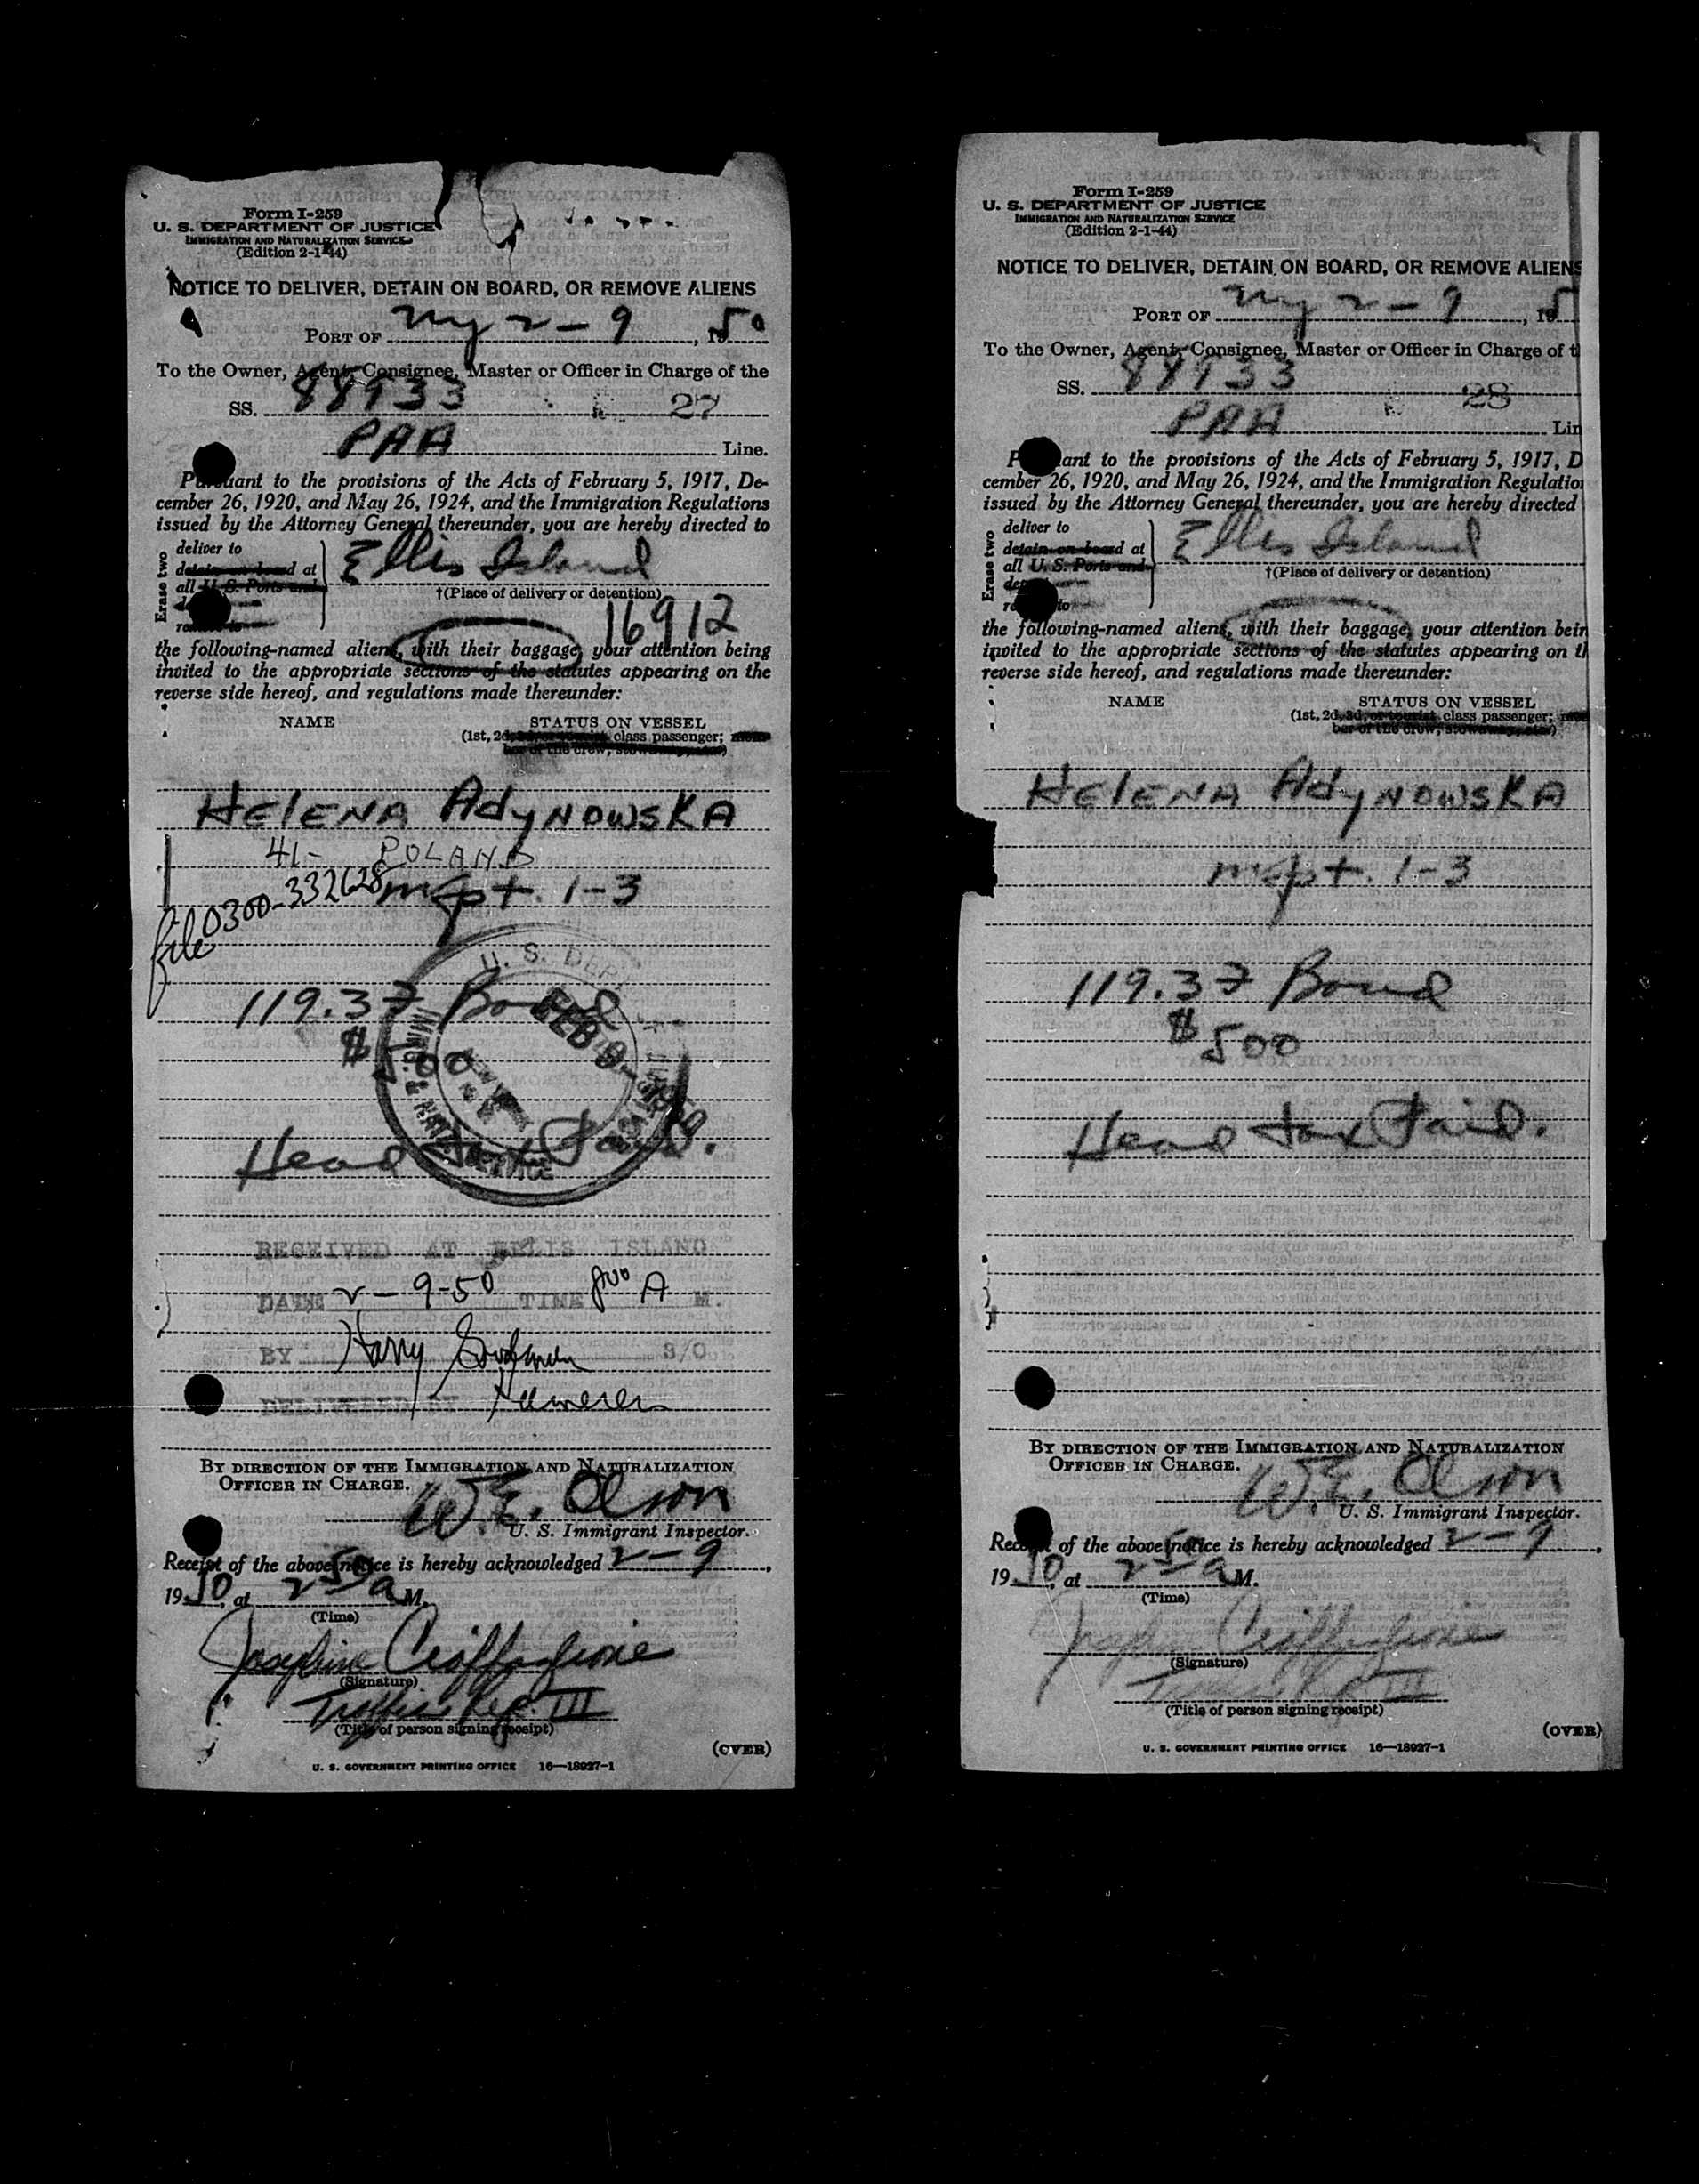 Form I-259
U. S. DEPARTMENT OF JUSTICE
IMMIGRATION AND NATURALIZATION SERVICE
(Edition 2-1-44)
NOTICE TO DELIVER, DETAIN ON BOARD, OR REMOVE ALIENS
PORT OF NY 2-9, 1950
To the Owner, Agent, Consignee, Master or Officer in Charge of the
SS. 88933 27
PAA Line.
Pursuant to the provisions of the Acts of February 5, 1917, De-
cember 26, 1920, and May 26, 1924, and the Immigration Regulations
issued by the Attorney General thereunder, you are hereby directed to
Erase two
deliver to
detain on board at
all U. S. Ports and
Ellis Island
†(Place of delivery or detention)
16912
the following-named aliens, with their baggage, your attention being
invited to the appropriate sections of the statutes appearing on the
reverse side hereof, and regulations made thereunder:
NAME STATUS ON VESSEL
(1st, 2d, 3d, or tourist class passenger; mem-
ber of the crew, stowaway, etc.)
HELENA AdyNOWSKA
41- POLAND
file 0300-332628
mcpt. 1-3
119.37 Bond
$500
Head tax Paid.
U. S. DEPT
IMMIG. & NATZ. SERVICE
FEB 9-1950
NEW YORK
RECEIVED AT ELLIS ISLAND
DATE 2-9-50 TIME 800 A M.
BY Harry S/O
DELIVERED BY
BY DIRECTION OF THE IMMIGRATION AND NATURALIZATION
OFFICER IN CHARGE.
W.E. Olson
U. S. Immigrant Inspector.
Receipt of the above notice is hereby acknowledged 2-9,
1950, at 250 a M.
(Time)
Josephine
(Signature)
Traffic Rep. III
(Title of person signing receipt)
(OVER)
U. S. GOVERNMENT PRINTING OFFICE 16—18927-1
Form I-259
U. S. DEPARTMENT OF JUSTICE
IMMIGRATION AND NATURALIZATION SERVICE
(Edition 2-1-44)
NOTICE TO DELIVER, DETAIN ON BOARD, OR REMOVE ALIENS
PORT OF NY 2-9, 195
To the Owner, Agent, Consignee, Master or Officer in Charge of t
SS. 88933 28
PAA Lin
P ant to the provisions of the Acts of February 5, 1917, D
cember 26, 1920, and May 26, 1924, and the Immigration Regulatio
issued by the Attorney General thereunder, you are hereby directed
Erase two
deliver to
detain on board at
all U. S. Ports and
Ellis Island
†(Place of delivery or detention)
the following-named aliens, with their baggage, your attention bein
invited to the appropriate sections of the statutes appearing on th
reverse side hereof, and regulations made thereunder:
NAME STATUS ON VESSEL
(1st, 2d, 3d, or tourist class passenger; mem
ber of the crew, stowaway, etc.)
HELENA AdyNOWSKA
mcpt. 1-3
119.37 Bond
$500
Head tax Paid.
BY DIRECTION OF THE IMMIGRATION AND NATURALIZATION
OFFICER IN CHARGE.
W.E. Olson
U. S. Immigrant Inspector.
Receipt of the above notice is hereby acknowledged 2-9,
1950, at 250 a M.
(Time)
Josephine
(Signature)
Traffic Rep. III
(Title of person signing receipt)
(OVER)
U. S. GOVERNMENT PRINTING OFFICE 16—18927-1